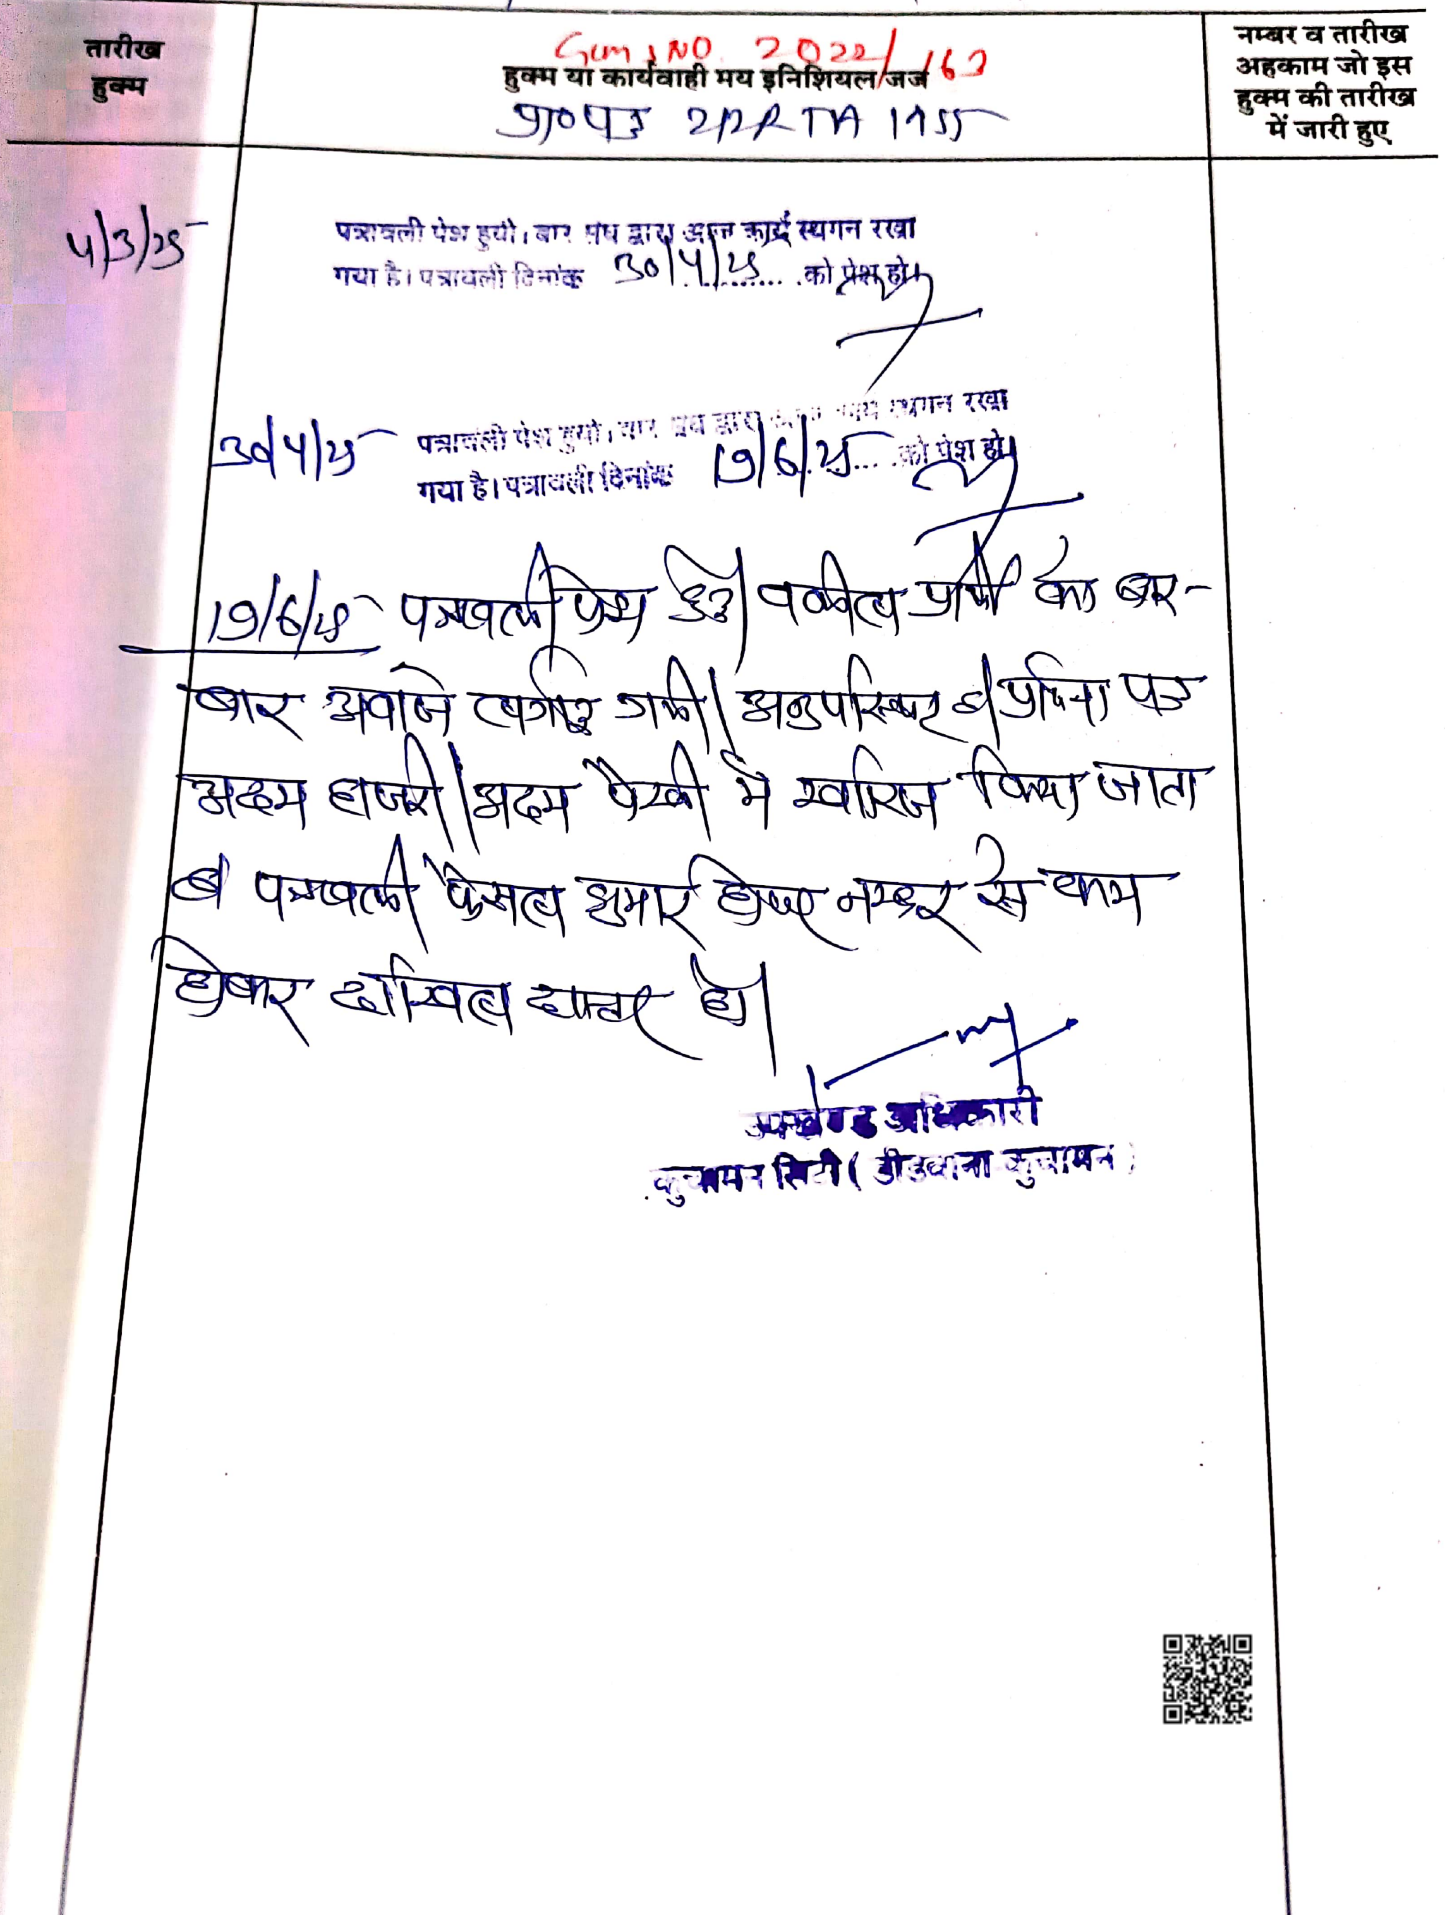 तारीख हुक्म
Gcms NO. 2022/163
हुक्म या कार्यवाही मय इनिशियल जज
प्रा०पत्र 212 RTA 1955
नम्बर व तारीख
अहकाम जो इस
हुक्म की तारीख
में जारी हुए
4/3/25
पत्रावली पेश हुयी। बार संघ द्वारा आज कार्य स्थगन रखा
गया है। पत्रावली दिनांक 30/4/25 को पेश हो।
30/4/25
पत्रावली पेश हुयी। बार संघ द्वारा आज कार्य स्थगन रखा
गया है। पत्रावली दिनांक 19/6/25 को पेश हो।
19/6/25 पत्रावली पेश हुई। वकील प्रार्थी को बार-
बार आवाजे लगाई गयी। अनुपस्थित है। प्रार्थना पत्र
अदम हाजरी/अदम पैरवी में खारिज किया जाता
है पत्रावली फैसल शुमार होकर नम्बर से कम
होकर दाखिल दफ्तर हो।
उपखण्ड अधिकारी
कुचामन सिटी (डीडवाना कुचामन)